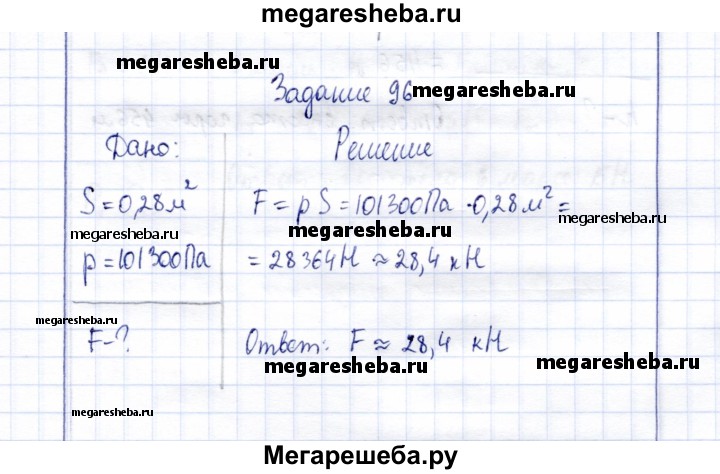 megaresheba.ru
megaresheba.ru
Задание 96
megaresheba.ru
Дано:
Решение
S = 0,28 м²
F = p S = 101300 Па · 0,28 м² =
megaresheba.ru
megaresheba.ru
megaresheba.ru
p = 101300 Па
= 28364 Н ≈ 28,4 кН
megaresheba.ru
F - ?
Ответ: F ≈ 28,4 кН
megaresheba.ru
megaresheba.ru
Мегарешеба.ру